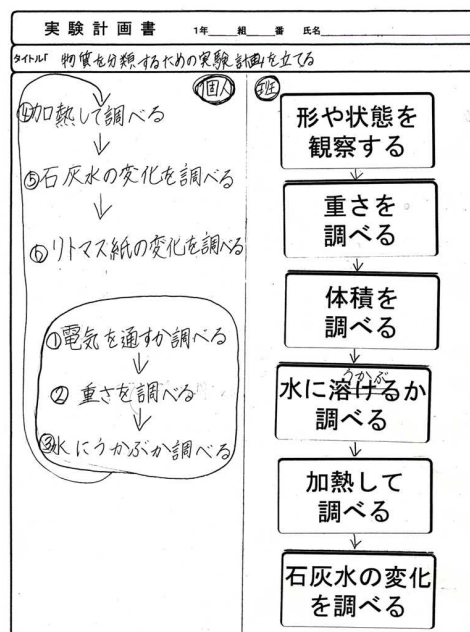 実験計画書 1年 組 番 氏名
タイトル「 物質を分類するための実験計画を立てる
個人
④加熱して調べる
↓
⑤石灰水の変化を調べる
↓
⑥リトマス紙の変化を調べる
①電気を通すか調べる
↓
② 重さを調べる
↓
③水にうかぶか調べる
班
形や状態を
観察する
↓
重さを
調べる
↓
体積を
調べる
↓
うかぶ
水に溶けるか
調べる
↓
加熱して
調べる
↓
石灰水の変化
を調べる